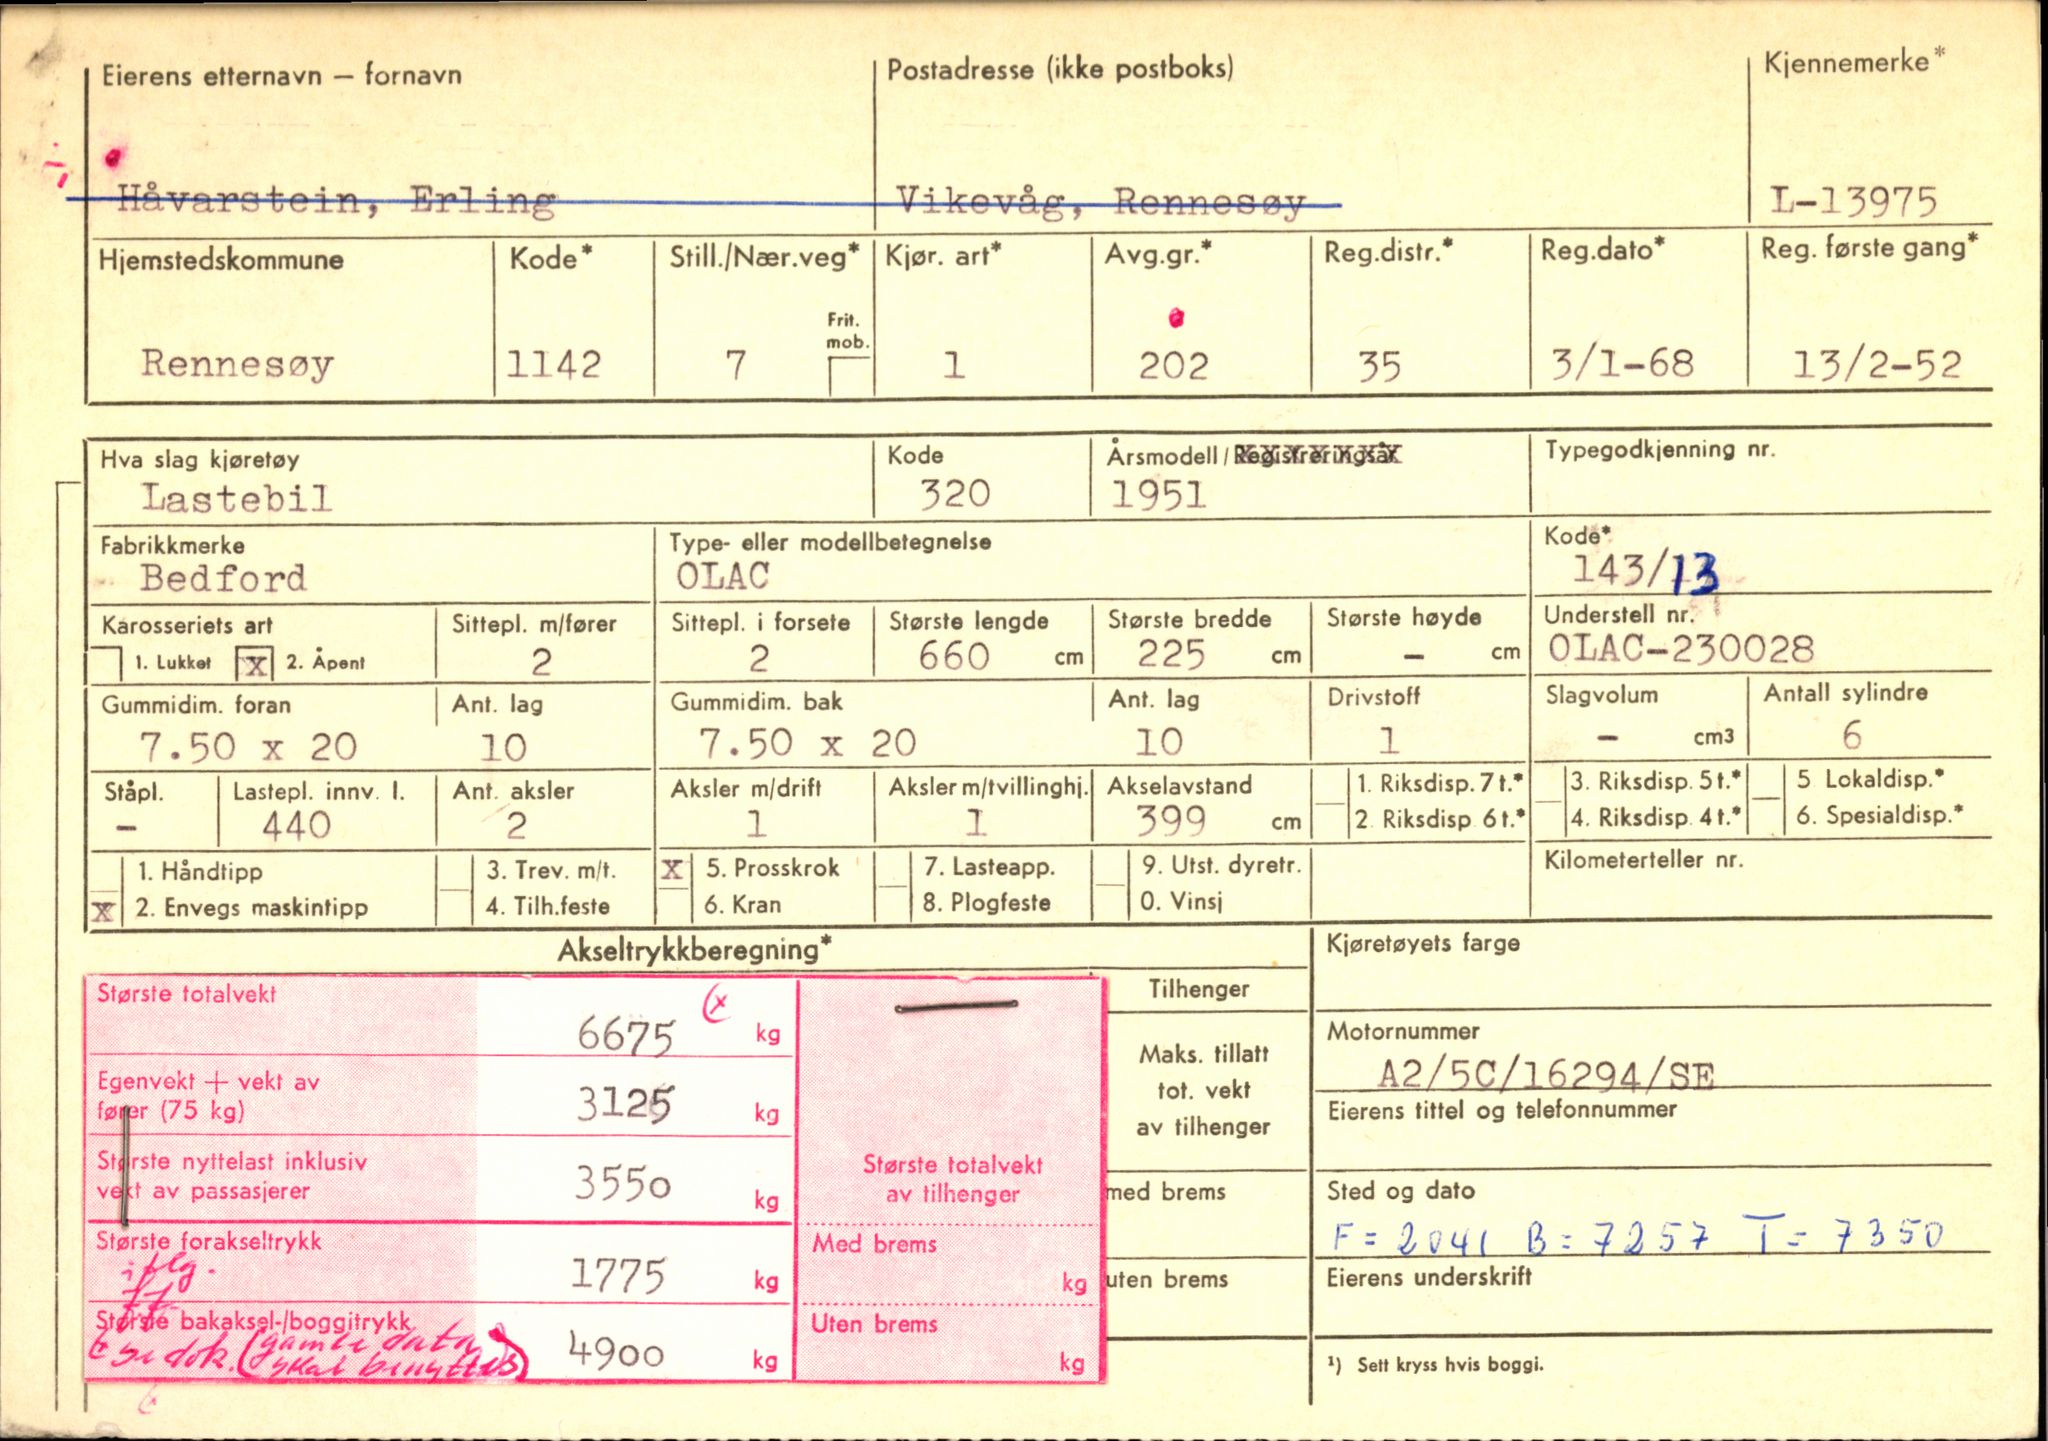 Eierens etternavn – fornavn Postadresse (ikke postboks) Kjennemerke*
Håvarstein, Erling Vikevåg, Rennesøy L-13975
Hjemstedskommune Kode* Still./Nær.veg* Kjør. art* Avg.gr.* Reg.distr.* Reg.dato* Reg. første gang*
Frit. mob.
Rennesøy 1142 7 1 202 35 3/1-68 13/2-52
Hva slag kjøretøy Kode Årsmodell/Registreringsår Typegodkjenning nr.
Lastebil 320 1951
Fabrikkmerke Type- eller modellbetegnelse Kode*
Bedford OLAC 143/13
Karosseriets art Sittepl. m/fører Sittepl. i forsete Største lengde Største bredde Største høyde Understell nr.
1. Lukket X 2. Åpent 2 2 660 cm 225 cm – cm OLAC-230028
Gummidim. foran Ant. lag Gummidim. bak Ant. lag Drivstoff Slagvolum Antall sylindre
7.50 x 20 10 7.50 x 20 10 1 – cm3 6
Ståpl. Lastepl. innv. l. Ant. aksler Aksler m/drift Aksler m/tvillinghj. Akselavstand 1. Riksdisp. 7 t.* 3. Riksdisp. 5 t.* 5 Lokaldisp.*
– 440 2 1 1 399 cm 2. Riksdisp. 6 t.* 4. Riksdisp. 4 t.* 6. Spesialdisp.*
1. Håndtipp 3. Trev. m/t. X 5. Prosskrok 7. Lasteapp. 9. Utst. dyretr. Kilometerteller nr.
X 2. Envegs maskintipp 4. Tilh.feste 6. Kran 8. Plogfeste 0. Vinsj
Akseltrykkberegning* Kjøretøyets farge
Største totalvekt 6675 (x kg Tilhenger
Motornummer
Maks. tillatt
A2/5C/16294/SE
Egenvekt + vekt av tot. vekt
fører (75 kg) 3125 kg Eierens tittel og telefonnummer
av tilhenger
Største nyttelast inklusiv Største totalvekt
vekt av passasjerer 3550 kg av tilhenger med brems Sted og dato
F = 2041 B = 7257 T = 7350
Største forakseltrykk 1775 kg Med brems
iflg. kg uten brems Eierens underskrift
Største bakaksel-/boggitrykk 4900 kg Uten brems
se dok. (gamle data skal benyttes) kg ¹) Sett kryss hvis boggi.